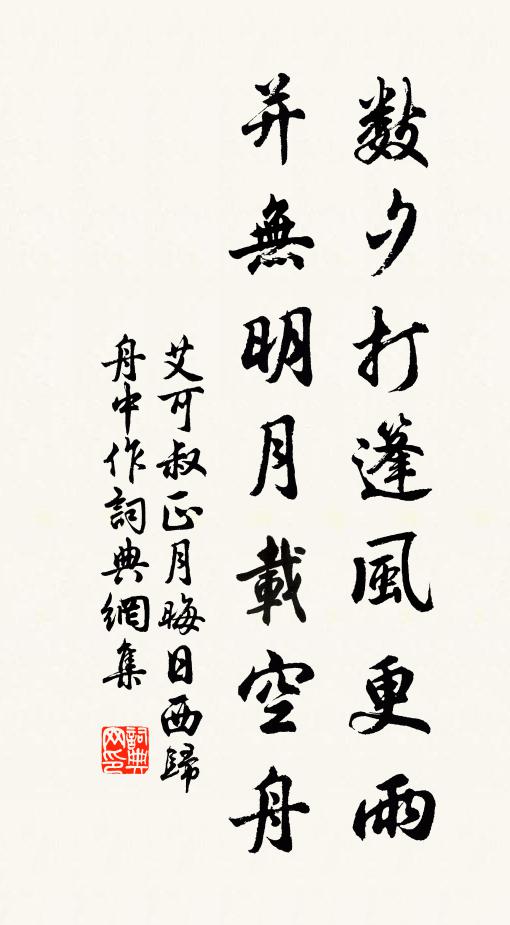 数夕打篷風更雨
并無明月載空舟
艾可叔正月晦日西歸
舟中作詞典網集
詞典
网印